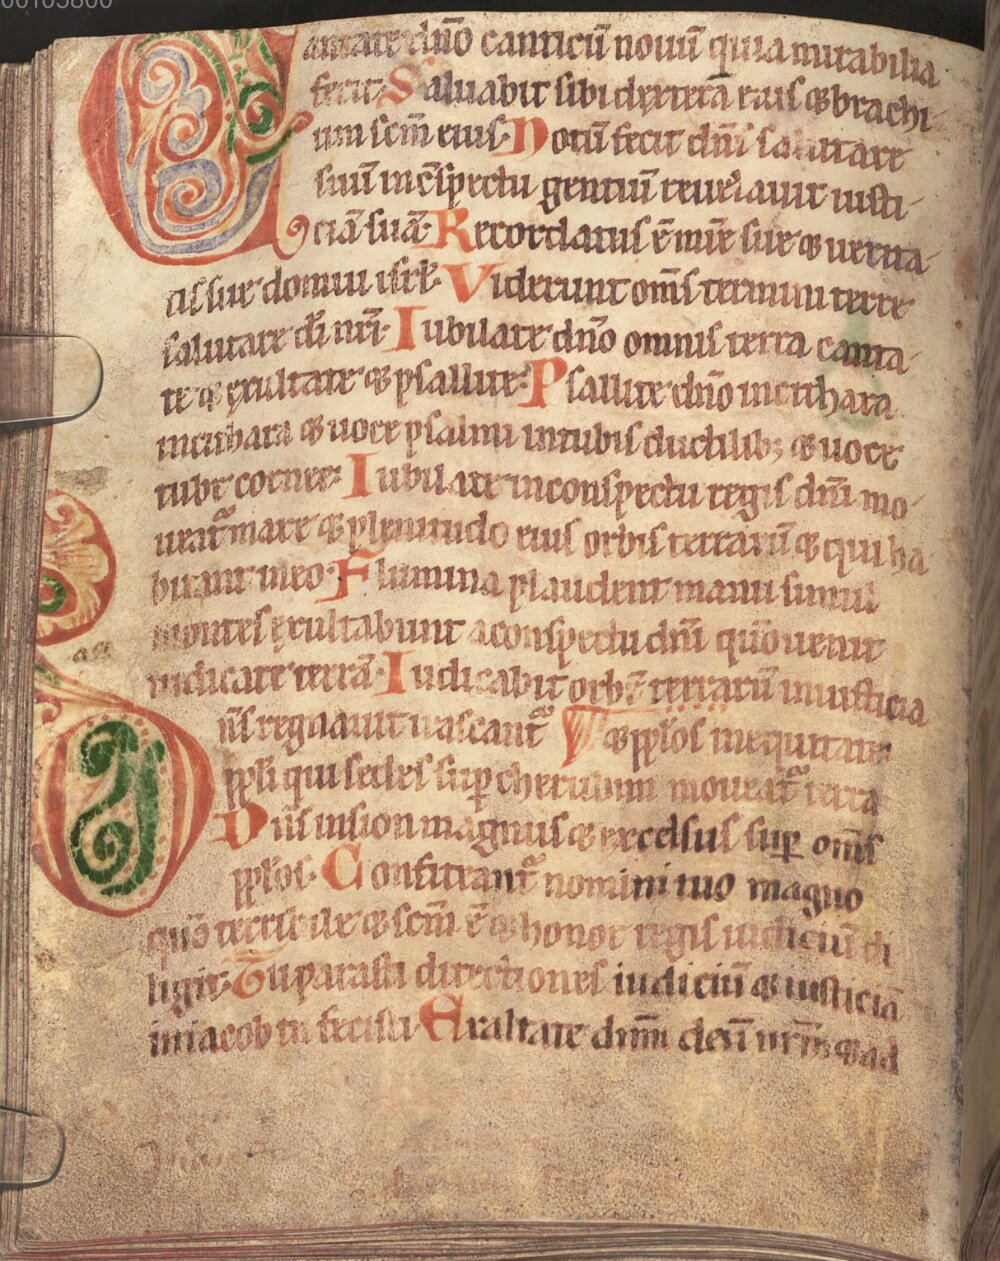 00105800
Cantate dño canticũ nouũ quia mirabilia
fecit. Saluabit sibi dextera eius & brachi-
um scm̃ eius. Notũ fecit dñs salutare
suũ in c̃spectu gentiũ reuelauit iusti-
ciã suã. Recordatus ẽ miẽ sue & uerita-
tis sue domui isrł. Viderunt om̃s termini terre
salutare di nr̃i. Iubilate dño omnis terra canta-
te & exultate & psallite. Psallite dño in cithara
in cithara & uoce psalmi in tubis ductilib; & uoce
tube cornee. Iubilate in conspectu regis dñi mo-
ueat̃ mare & plenitudo eius orbis terrarũ & qui ha-
bitant in eo. Flumina plaudent manu simul
montes exultabunt a conspectu dñi qm̃ uenit
iudicare terrã. Iudicabit orbẽ terrarũ in iusticia
Dñs regnauit irascant̃ & ppłos in equitate
ppłi qui sedes sup cherubim moueat̃ terra
Dñs in sion magnus & excelsus sup om̃s
ppłos. Confiteant̃ nomini tuo magno
qm̃ terribile & scm̃ ẽ & honor regis iudiciũ di-
ligit. Tu parasti directiones iudiciũ & iusticiã
in iacob tu fecisti. Exaltate dnm̃ deũ nr̃m & ad